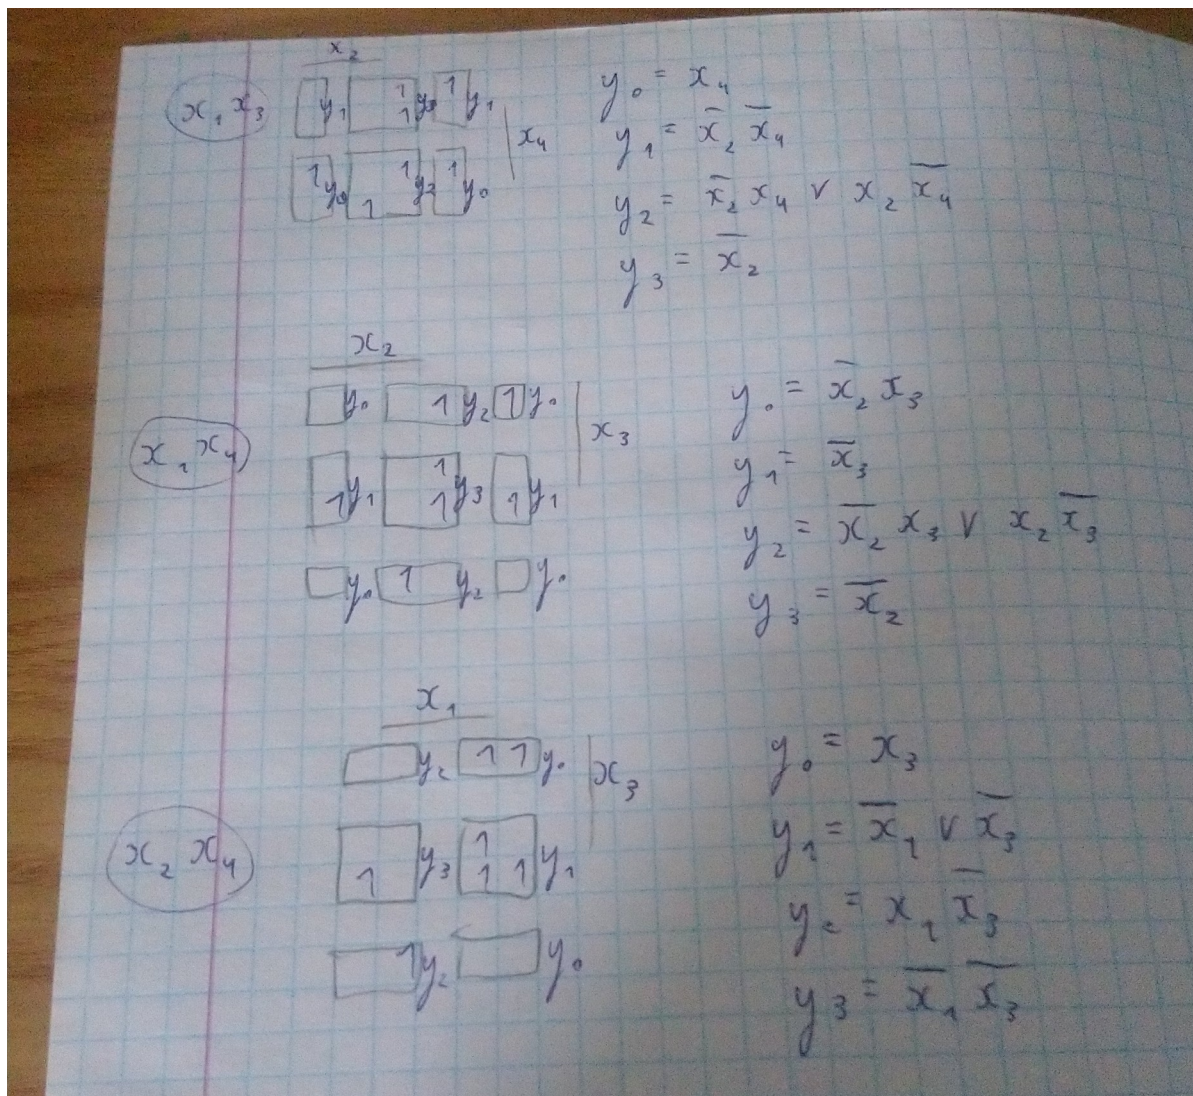 x₂
x₁x₃ y₁ 1 1 y₃ 1 y₁ x₄
1 y₀ 1 1 y₂ 1 y₀
y₀ = x₄
y₁ = x̄₂ x̄₄
y₂ = x̄₂ x₄ v x₂ x̄₄
y₃ = x̄₂
x₂
y₀ 1 y₂ 1 y₀ x₃
x₁x₄
1 y₁ 1 1 y₃ 1 y₁
y₀ 1 y₂ y₀
y₀ = x̄₂ x₃
y₁ = x̄₃
y₂ = x̄₂ x₃ v x₂ x̄₃
y₃ = x̄₂
x₁
y₂ 1 1 y₀ x₃
x₂ x₄ 1 y₃ 1 1 1 y₁
1 y₂ y₀
y₀ = x₃
y₁ = x̄₁ v x̄₃
y₂ = x₁ x̄₃
y₃ = x̄₁ x̄₃